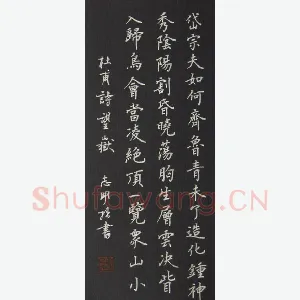 岱宗夫如何齊魯青未了造化鍾神
秀陰陽割昏曉蕩胸生層雲決眥
入歸鳥會當凌絕頂一覽眾山小
杜甫詩望嶽 志明書
Shufawang.CN